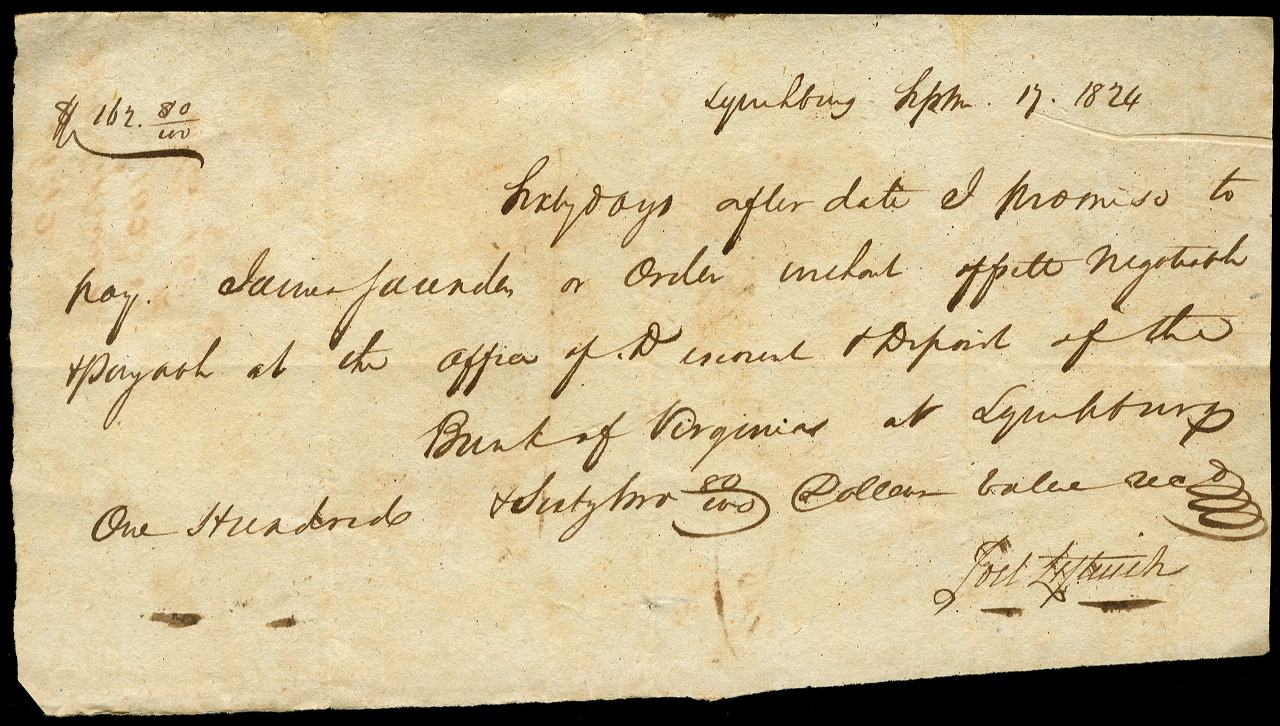 $ 162. 80/100
Lynchburg Septm. 17. 1824
Sixty days after date I promise to
pay. James Saunders or Order without offsett Negotiable
& Payable at the office of Discount & Deposit of the
Bank of Virginia at Lynchburg
One Hundred & Sixty two 80/100 Dollars Value recd
Joel Leftwich